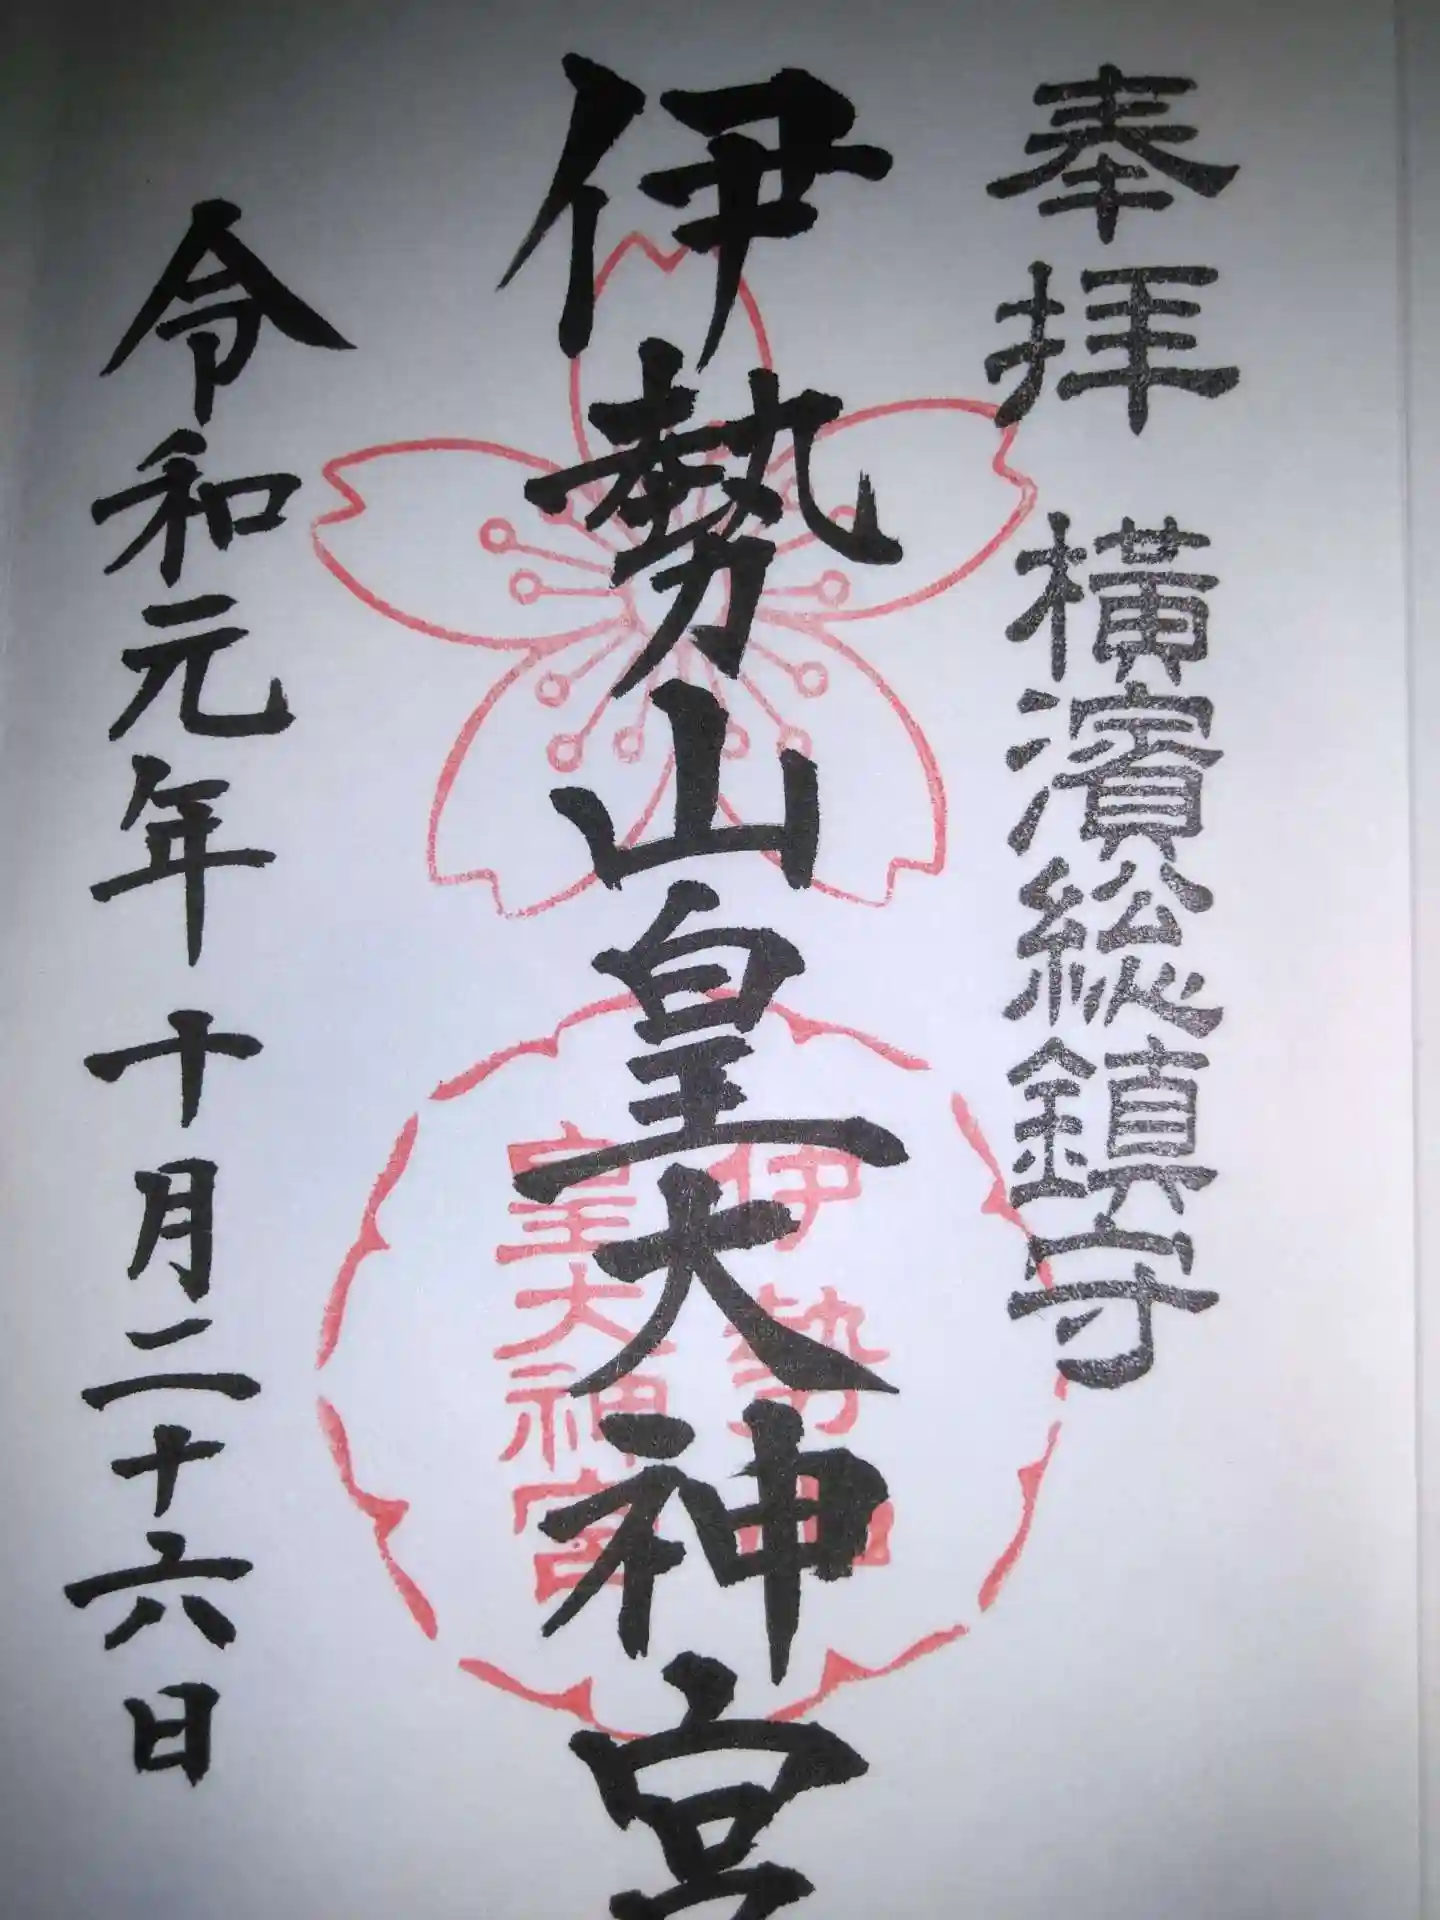 奉拝 横濱総鎮守
伊勢山皇大神宮
伊勢山
皇大神宮
令和元年十月二十六日